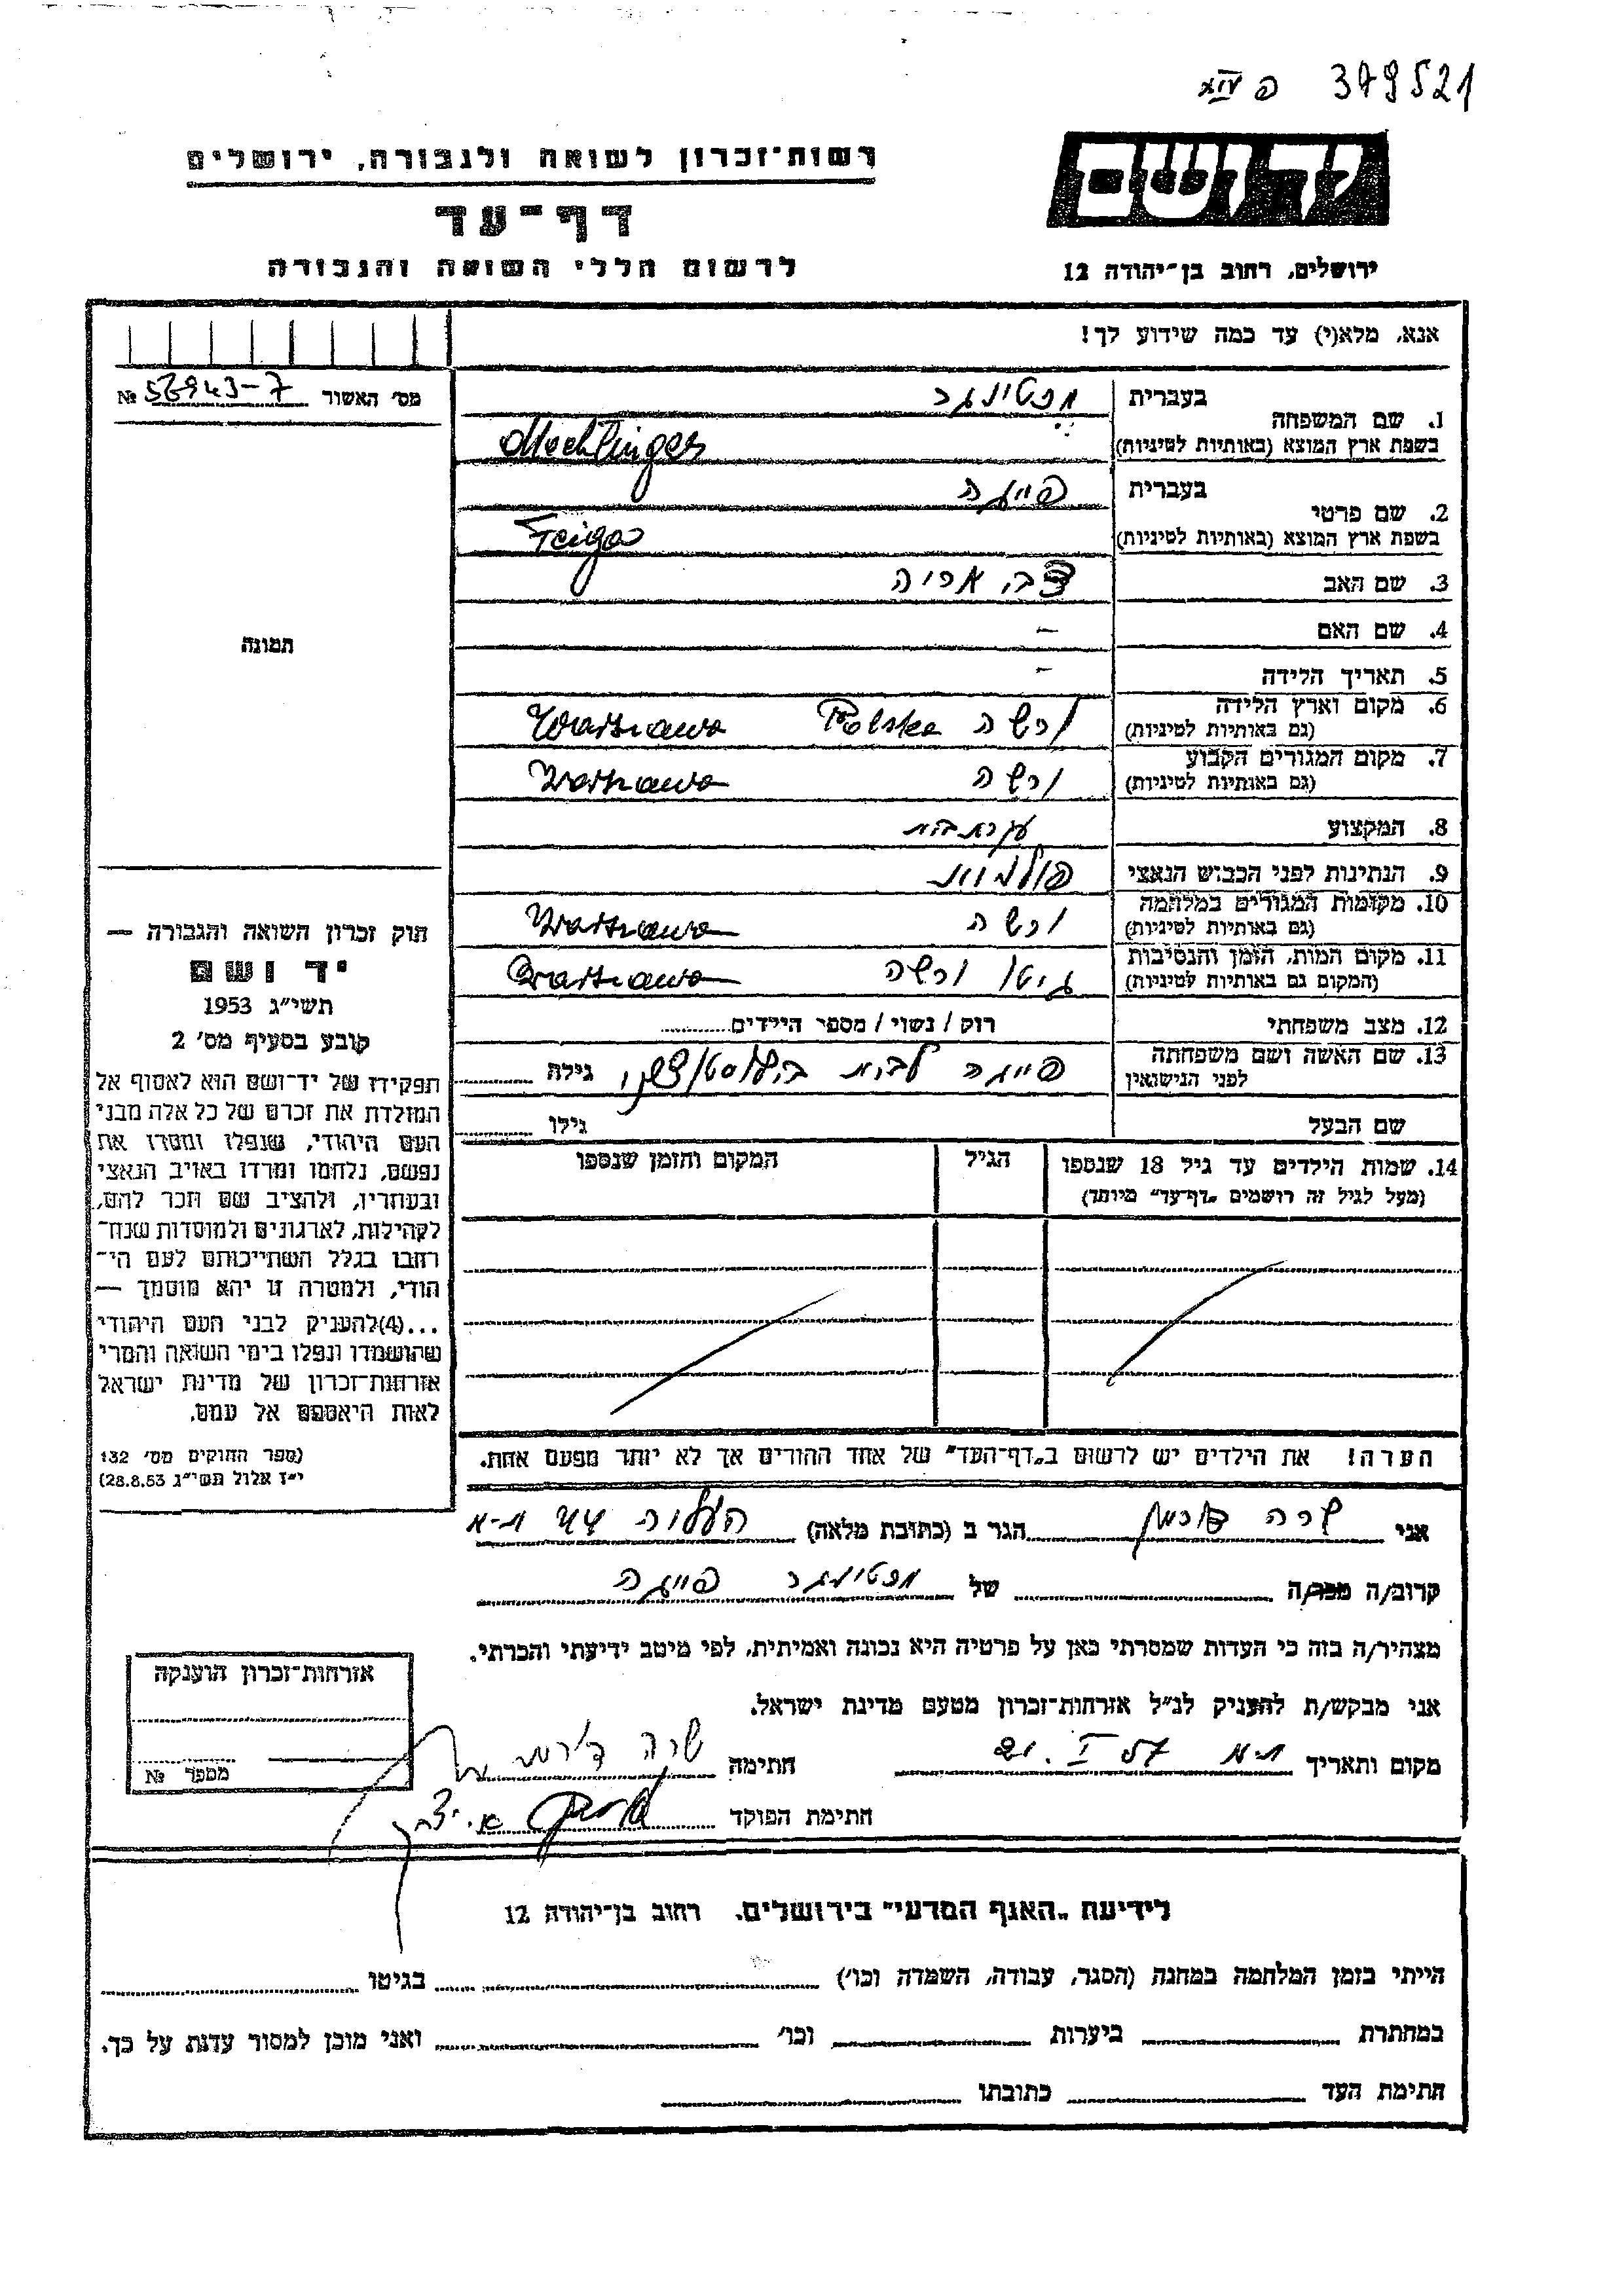 379521
יד ושם
רשות־זכרון לשואה ולגבורה, ירושלים
דף־עד
לרשום חללי השואה והגבורה
ירושלים, רחוב בן־יהודה 12
אנא, מלא(י) עד כמה שידוע לך!
מס׳ האשור № 56943-7
1. שם המשפחה
בעברית
בשפת ארץ המוצא (באותיות לטיניות) Mechlinger
2. שם פרטי
בעברית פייגה
בשפת ארץ המוצא (באותיות לטיניות) Feiga
3. שם האב צבי אריה
4. שם האם –
5. תאריך הלידה –
6. מקום וארץ הלידה ורשה Polska Warszawa
(גם באותיות לטיניות)
7. מקום המגורים הקבוע ורשה Warszawa
(גם באותיות לטיניות)
8. המקצוע עקרת בית
9. הנתינות לפני הכבוש הנאצי פולנית
10. מקומות המגורים במלחמה ורשה Warszawa
(גם באותיות לטיניות)
11. מקום המות, הזמן והנסיבות גיטו ורשה Warszawa
(המקום גם באותיות לטיניות)
12. מצב משפחתי רוק / נשוי / מספר הילדים
13. שם האשה ושם משפחתה
לפני הנישואין פייגה לבית גילה
שם הבעל גילו
14. שמות הילדים עד גיל 18 שנספו
(מעל לגיל זה רושמים „דף־עד״ מיוחד)
הגיל
המקום והזמן שנספו
הערה! את הילדים יש לרשום ב„דף־העד״ של אחד ההורים אך לא יותר מפעם אחת.
תמונה
חוק זכרון השואה והגבורה —
יד ושם
תשי״ג 1953
קובע בסעיף מס׳ 2
תפקידו של יד־ושם הוא לאסוף אל
המולדת את זכרם של כל אלה מבני
העם היהודי, שנפלו ומסרו את
נפשם, נלחמו ומרדו באויב הנאצי
ובעוזריו, ולהציב שם וזכר להם,
לקהילות, לארגונים ולמוסדות שנח־
רבו בגלל השתייכותם לעם הי־
הודי, ולמטרה זו יהא מוסמך —
...(4) להעניק לבני העם היהודי
שהושמדו ונפלו בימי השואה והמרי
אזרחות־זכרון של מדינת ישראל
לאות היאספם אל עמם.
(ספר החוקים מס׳ 132
י״ז אלול תשי״ג 28.8.53)
אני שרה הגר ב (כתובת מלאה) העליה ת-א
קרוב/ה מכר/ה של פייגה
מצהיר/ה בזה כי העדות שמסרתי כאן על פרטיה היא נכונה ואמיתית, לפי מיטב ידיעתי והכרתי.
אני מבקש/ת להעניק לנ״ל אזרחות־זכרון מטעם מדינת ישראל.
מקום ותאריך ת-א 21. I 57 חתימה שרה
חתימת הפוקד
אזרחות־זכרון הוענקה
מספר №
לידיעת „האגף המדעי״ בירושלים, רחוב בן־יהודה 12
הייתי בזמן המלחמה במחנה (הסגר, עבודה, השמדה וכו׳) בגיטו
במחתרת ביערות וכו׳ ואני מוכן למסור עדות על כך.
חתימת העד כתובתו